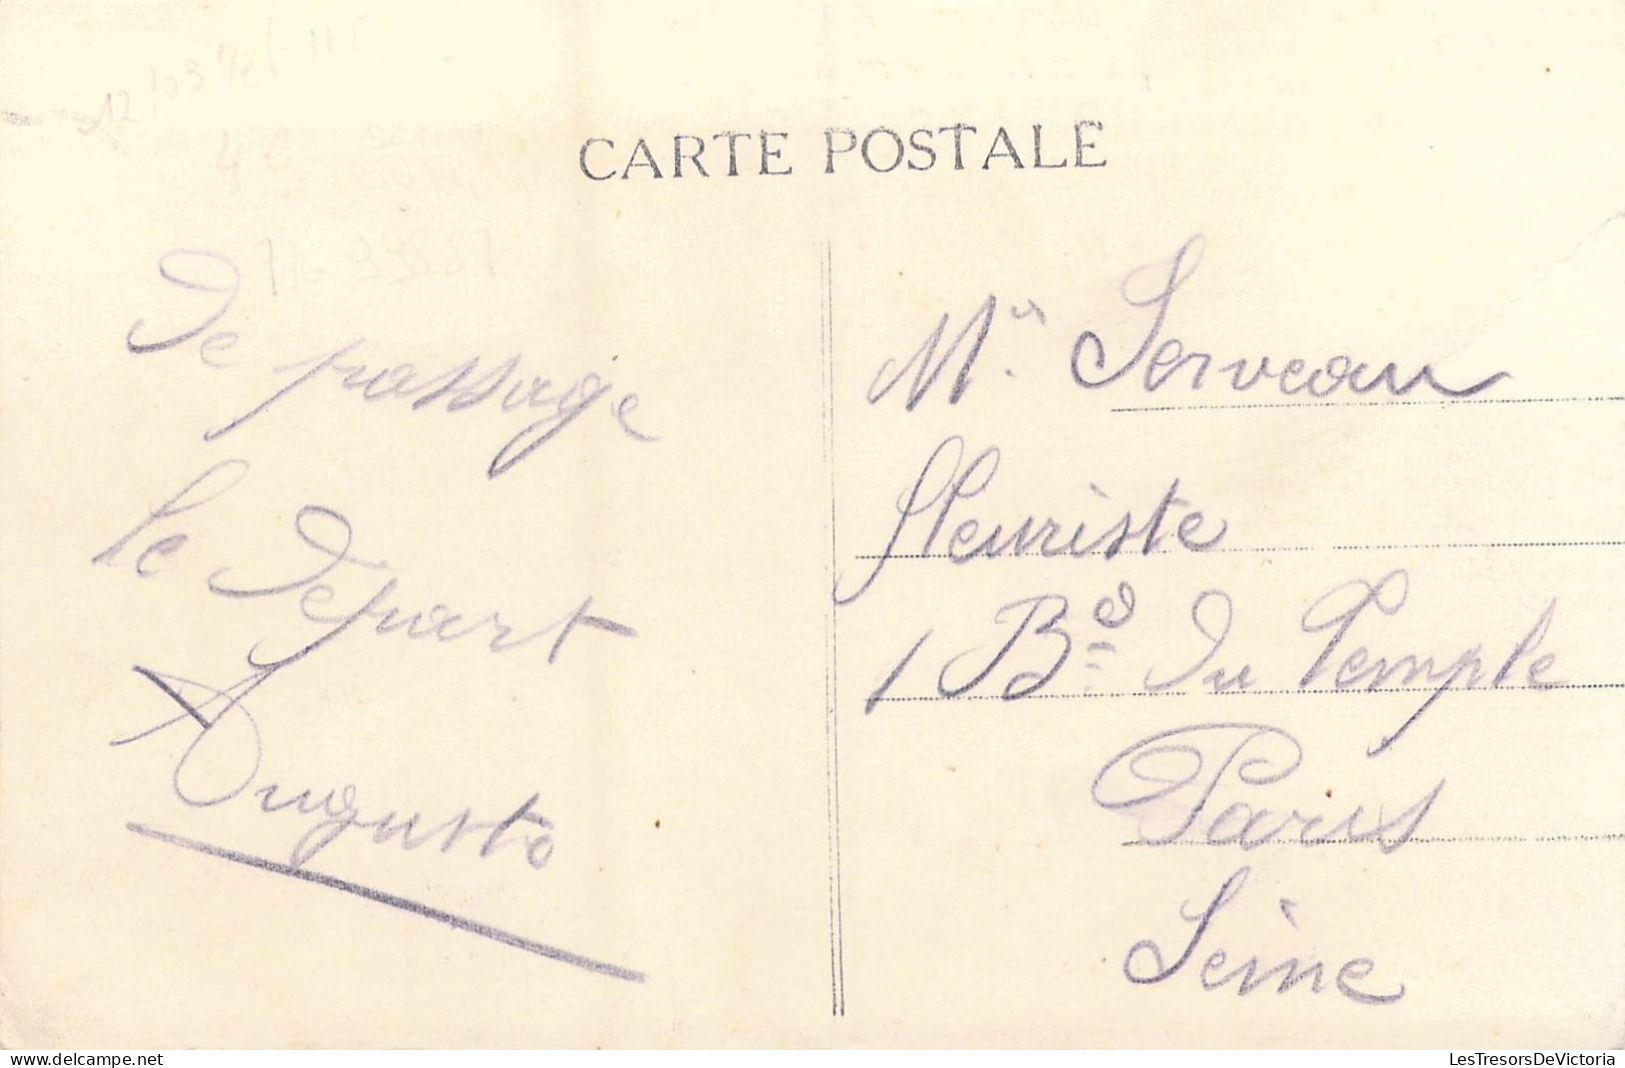 CARTE POSTALE
4 €
De passage
le Départ
Auguste
Mr Serveau
fleuriste
1 Bd du Temple
Paris
Seine
www.delcampe.net
LesTresorsDeVictoria